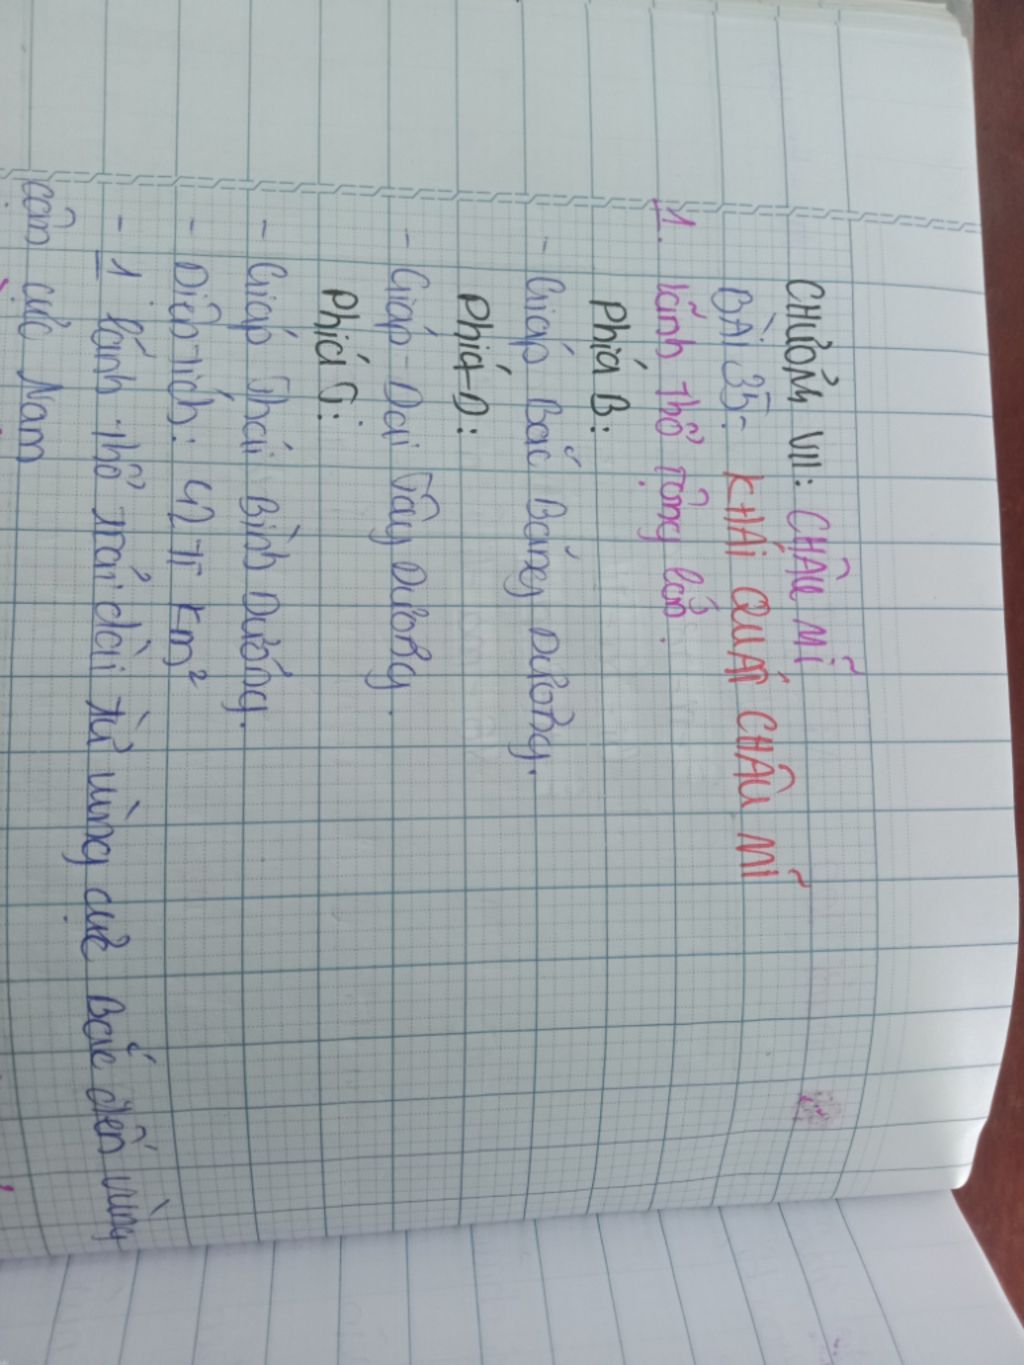 CHƯƠNG VII: CHÂU MĨ
BÀI 35: KHÁI QUÁT CHÂU MĨ
1. Lãnh thổ rộng lớn.
Phía B:
- Giáp Bắc Băng Dương.
Phía Đ:
- Giáp Đại Tây Dương.
Phía T:
- Giáp Thái Bình Dương.
- Diện tích: 42 Tr km²
- 1 lãnh thổ trải dài từ vùng cực Bắc đến vùng
cận cực Nam